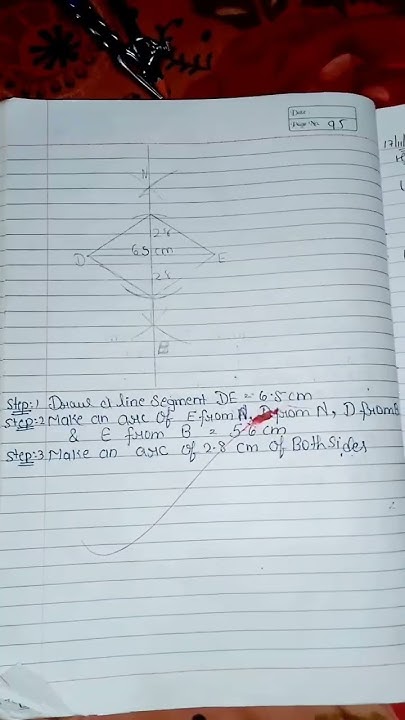 Date
Page No. 95
17/11
N
2.8
6.5 cm
D
E
2.8
B
Step:1 Draw a line segment DE = 6.5 cm
Step:2 Make an arc of E from N, D from N, D from B
& E from B = 5.6 cm
Step:3 Make an arc of 2.8 cm of Both Sides